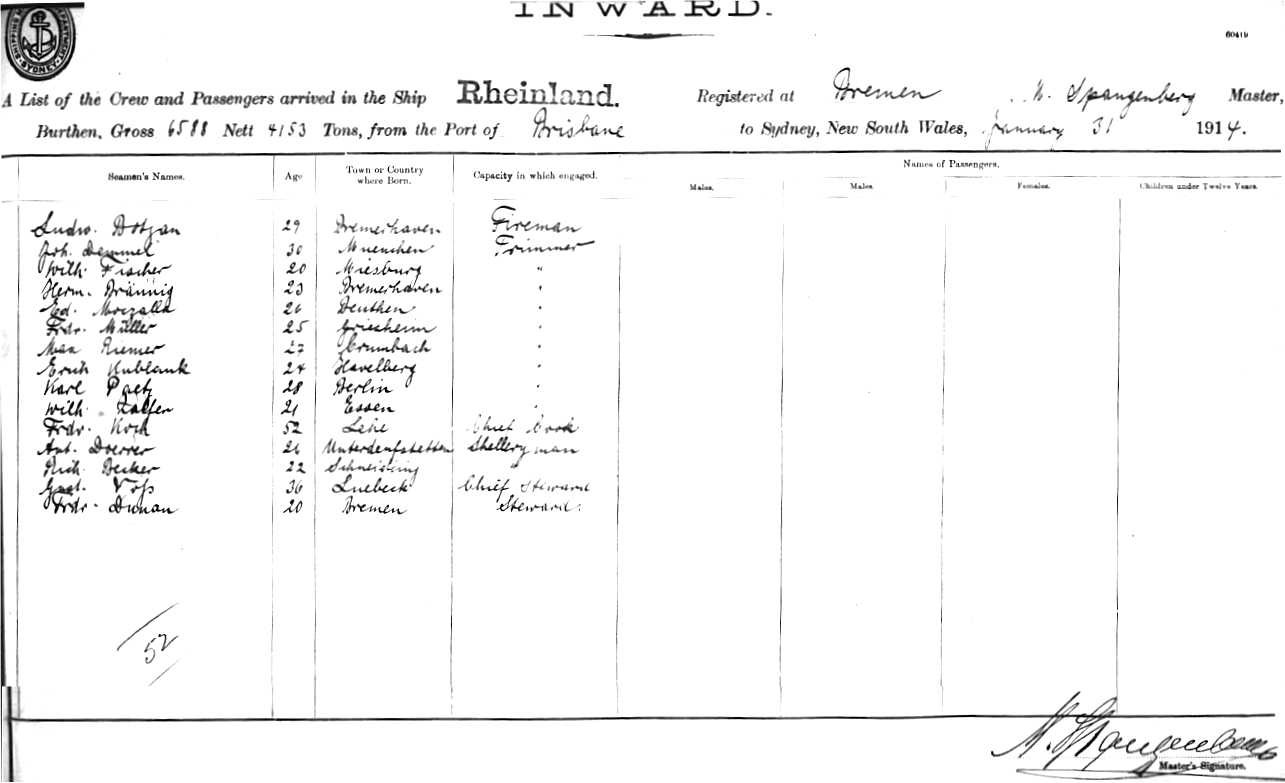 INWARD.
60419
SHIPPING SYDNEY
A List of the Crew and Passengers arrived in the Ship Rheinland. Registered at Bremen Spangenberg Master,
Burthen, Gross 6588 Nett 4153 Tons, from the Port of Brisbane to Sydney, New South Wales, January 31 1914.
Names of Passengers.
Seamen's Names. Age Town or Country where Born. Capacity in which engaged. Males. Males. Females. Children under Twelve Years.
Ludw. 29 Bremerhaven Fireman
Joh. Demmel 30 Muenchen Trimmer
Wilh. Fischer 20 Miesburg "
Herm. Bräunig 23 Bremerhaven "
Ed. 26 Beuthen "
Frdr. Müller 25 Griesheim "
Max Riemer 27 Crumbach "
Erich Kublank 24 Havelberg "
Karl Paetz 28 Berlin "
Wilh. 21 Essen "
Frdr. Koch 52 Lehe Chief Cook
Ant. Doerrer 26 man
Rich. Becker 22
Gust. Voß 36 Luebeck Chief Steward
Frdr. 20 Bremen Steward.
52
Spangenberg
Master's Signature.